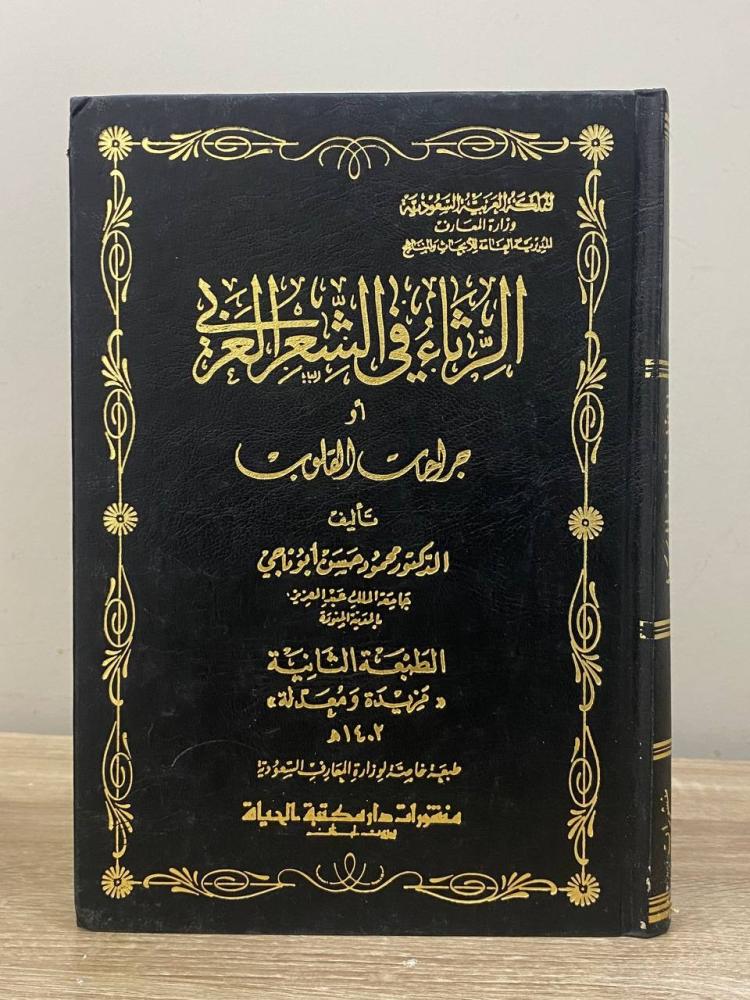 المملكة العربية السعودية
وزارة المعارف
المديرية العامة للأبحاث والمناهج
الرِّثاءُ في الشِّعر العربي
أو
جراحات القلوب
تأليف
الدكتور محمود حسن أبو ناجي
جامعة الملك عبد العزيز
بالمدينة المنورة
الطبعة الثانية
«مزيدة ومعدلة»
١٤٠٢هـ
طبعة خاصة لوزارة المعارف السعودية
منشورات دار مكتبة الحياة
بيروت لبنان